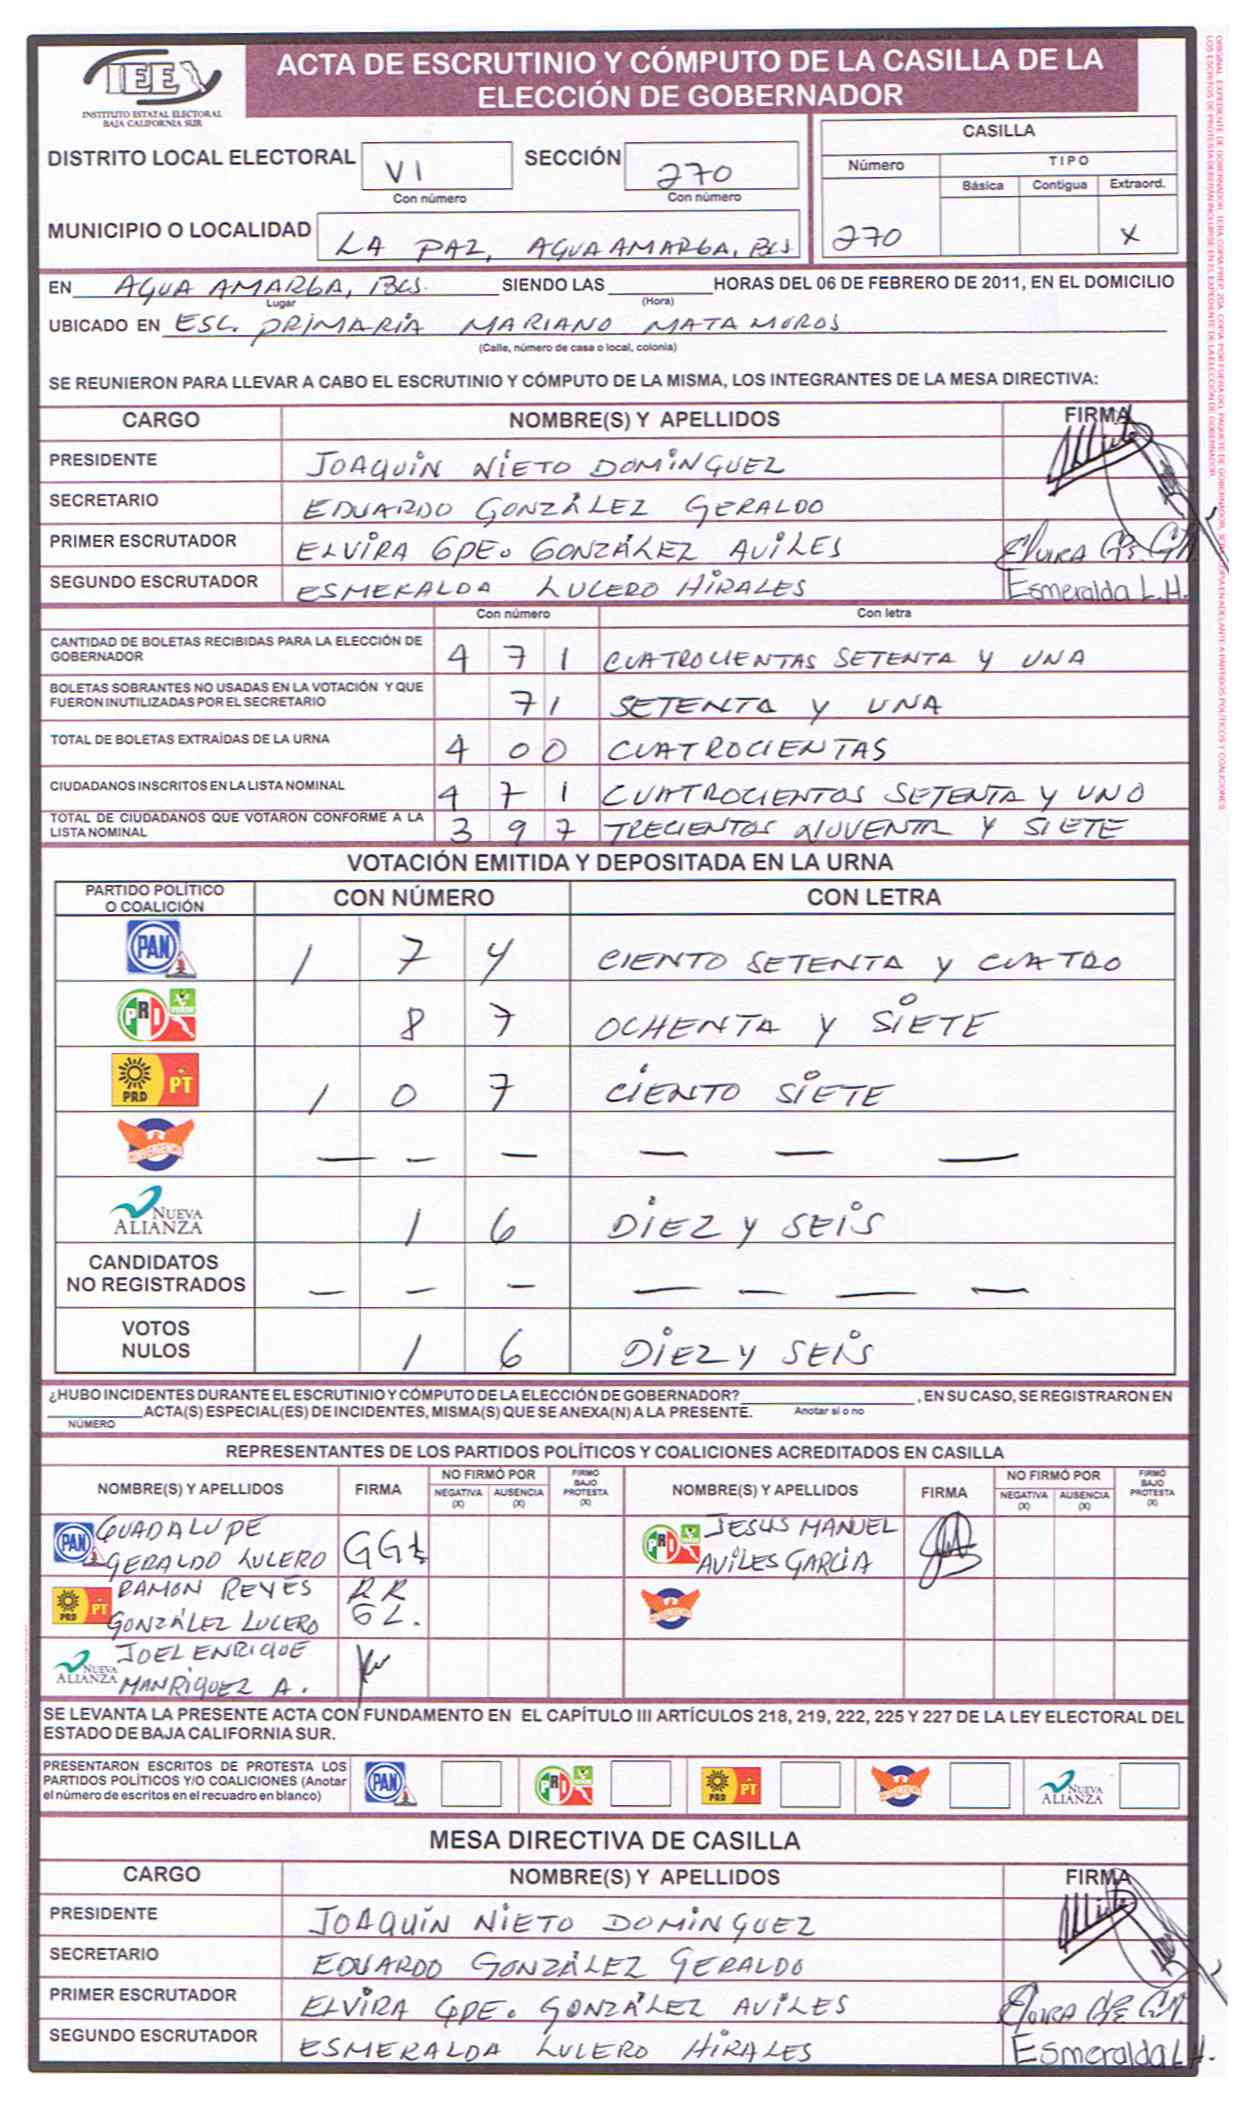 IEE
INSTITUTO ESTATAL ELECTORAL
BAJA CALIFORNIA SUR
ACTA DE ESCRUTINIO Y CÓMPUTO DE LA CASILLA DE LA
ELECCIÓN DE GOBERNADOR
DISTRITO LOCAL ELECTORAL VI SECCIÓN 270
Con número Con número
MUNICIPIO O LOCALIDAD LA PAZ, AGUA AMARGA, BCS
CASILLA
Número TIPO
Básica Contigua Extraord.
270 X
EN AGUA AMARGA, BCS. SIENDO LAS HORAS DEL 06 DE FEBRERO DE 2011, EN EL DOMICILIO
Lugar (Hora)
UBICADO EN ESC. PRIMARIA MARIANO MATAMOROS
(Calle, número de casa o local, colonia)
SE REUNIERON PARA LLEVAR A CABO EL ESCRUTINIO Y CÓMPUTO DE LA MISMA, LOS INTEGRANTES DE LA MESA DIRECTIVA:
CARGO NOMBRE(S) Y APELLIDOS FIRMA
PRESIDENTE JOAQUÍN NIETO DOMINGUEZ
SECRETARIO EDUARDO GONZÁLEZ GERALDO
PRIMER ESCRUTADOR ELVIRA GPE. GONZÁLEZ AVILES
SEGUNDO ESCRUTADOR ESMERALDA LUCERO HIRALES Esmeralda L.H.
Con número Con letra
CANTIDAD DE BOLETAS RECIBIDAS PARA LA ELECCIÓN DE
GOBERNADOR 4 7 1 CUATROCIENTAS SETENTA Y UNA
BOLETAS SOBRANTES NO USADAS EN LA VOTACIÓN Y QUE
FUERON INUTILIZADAS POR EL SECRETARIO 71 SETENTA Y UNA
TOTAL DE BOLETAS EXTRAÍDAS DE LA URNA 4 0 0 CUATROCIENTAS
CIUDADANOS INSCRITOS EN LA LISTA NOMINAL 4 7 1 CUATROCIENTOS SETENTA Y UNO
TOTAL DE CIUDADANOS QUE VOTARON CONFORME A LA
LISTA NOMINAL 3 9 7 TRECIENTOS NOVENTA Y SIETE
VOTACIÓN EMITIDA Y DEPOSITADA EN LA URNA
PARTIDO POLÍTICO
O COALICIÓN CON NÚMERO CON LETRA
PAN 1 7 4 CIENTO SETENTA Y CUATRO
PRI VERDE 8 7 OCHENTA Y SIETE
PRD PT 1 0 7 CIENTO SIETE
CONVERGENCIA — — — — — —
NUEVA ALIANZA 1 6 DIEZ Y SEIS
CANDIDATOS
NO REGISTRADOS — — — — — — —
VOTOS
NULOS 1 6 DIEZ Y SEIS
¿HUBO INCIDENTES DURANTE EL ESCRUTINIO Y CÓMPUTO DE LA ELECCIÓN DE GOBERNADOR? , EN SU CASO, SE REGISTRARON EN
ACTA(S) ESPECIAL(ES) DE INCIDENTES, MISMA(S) QUE SE ANEXA(N) A LA PRESENTE. Anotar si o no
NÚMERO
REPRESENTANTES DE LOS PARTIDOS POLÍTICOS Y COALICIONES ACREDITADOS EN CASILLA
NOMBRE(S) Y APELLIDOS FIRMA NO FIRMÓ POR NEGATIVA (X) AUSENCIA (X) FIRMÓ BAJO PROTESTA (X) NOMBRE(S) Y APELLIDOS FIRMA NO FIRMÓ POR NEGATIVA (X) AUSENCIA (X) FIRMÓ BAJO PROTESTA (X)
PAN GUADALUPE PRI JESUS MANUEL
GERALDO LUCERO GGL AVILES GARCIA
PRD PT RAMON REYES R R CONVERGENCIA
GONZÁLEZ LUCERO G L.
NUEVA ALIANZA JOEL ENRIQUE
MANRIQUEZ A.
SE LEVANTA LA PRESENTE ACTA CON FUNDAMENTO EN EL CAPÍTULO III ARTÍCULOS 218, 219, 222, 225 Y 227 DE LA LEY ELECTORAL DEL
ESTADO DE BAJA CALIFORNIA SUR.
PRESENTARON ESCRITOS DE PROTESTA LOS
PARTIDOS POLÍTICOS Y/O COALICIONES (Anotar
el número de escritos en el recuadro en blanco)
PAN PRI PRD PT CONVERGENCIA NUEVA ALIANZA
MESA DIRECTIVA DE CASILLA
CARGO NOMBRE(S) Y APELLIDOS FIRMA
PRESIDENTE JOAQUÍN NIETO DOMINGUEZ
SECRETARIO EDUARDO GONZÁLEZ GERALDO
PRIMER ESCRUTADOR ELVIRA GPE. GONZÁLEZ AVILES
SEGUNDO ESCRUTADOR ESMERALDA LUCERO HIRALES Esmeralda L.H.